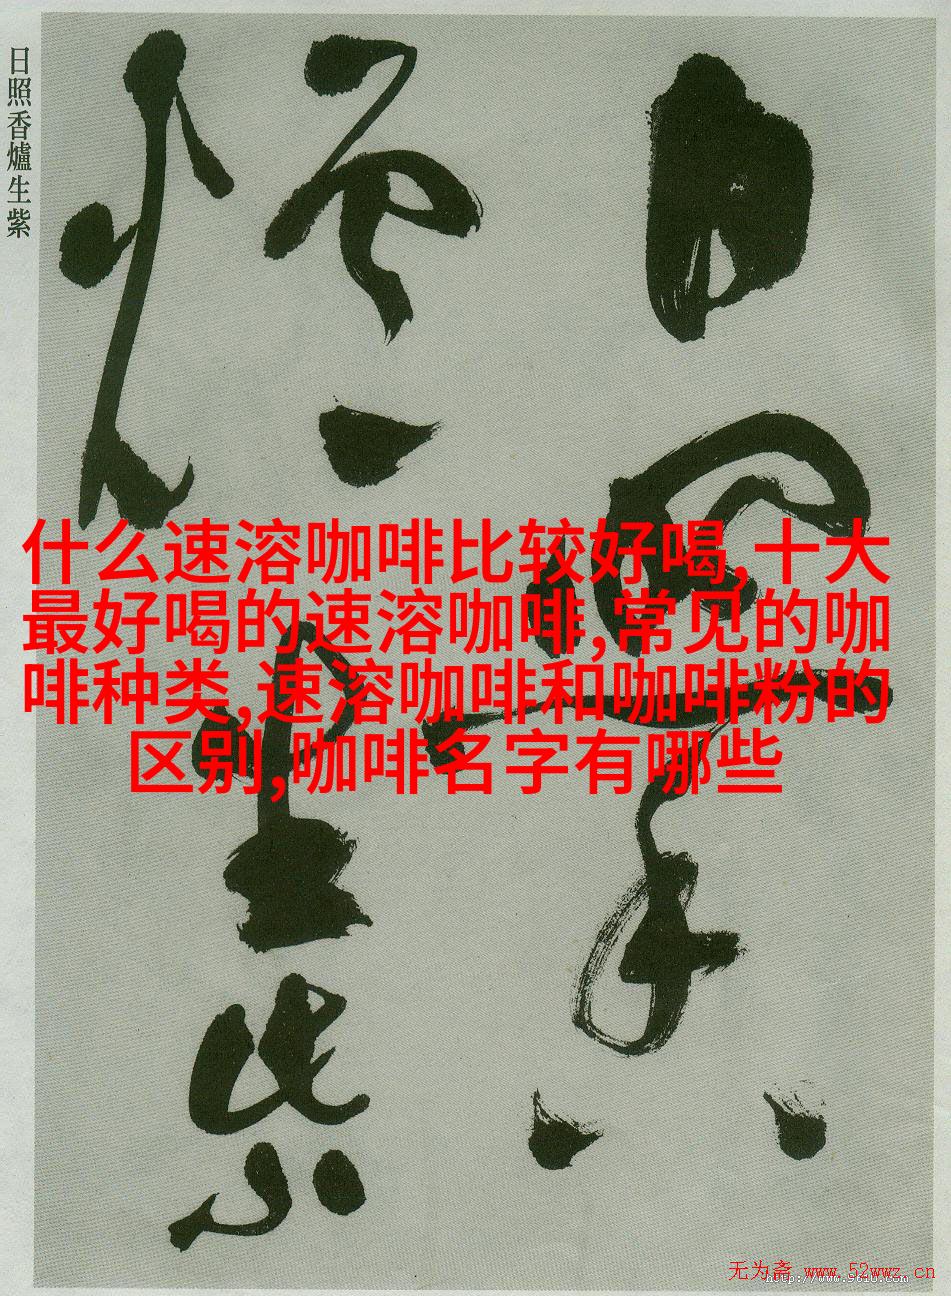 日照香爐生紫
日照香
爐生紫
什么速溶咖啡比较好喝,十大
最好喝的速溶咖啡,常见的咖
啡种类,速溶咖啡和咖啡粉的
区别,咖啡名字有哪些
无为斋 www.52wwz.cn
http://www.9610.com